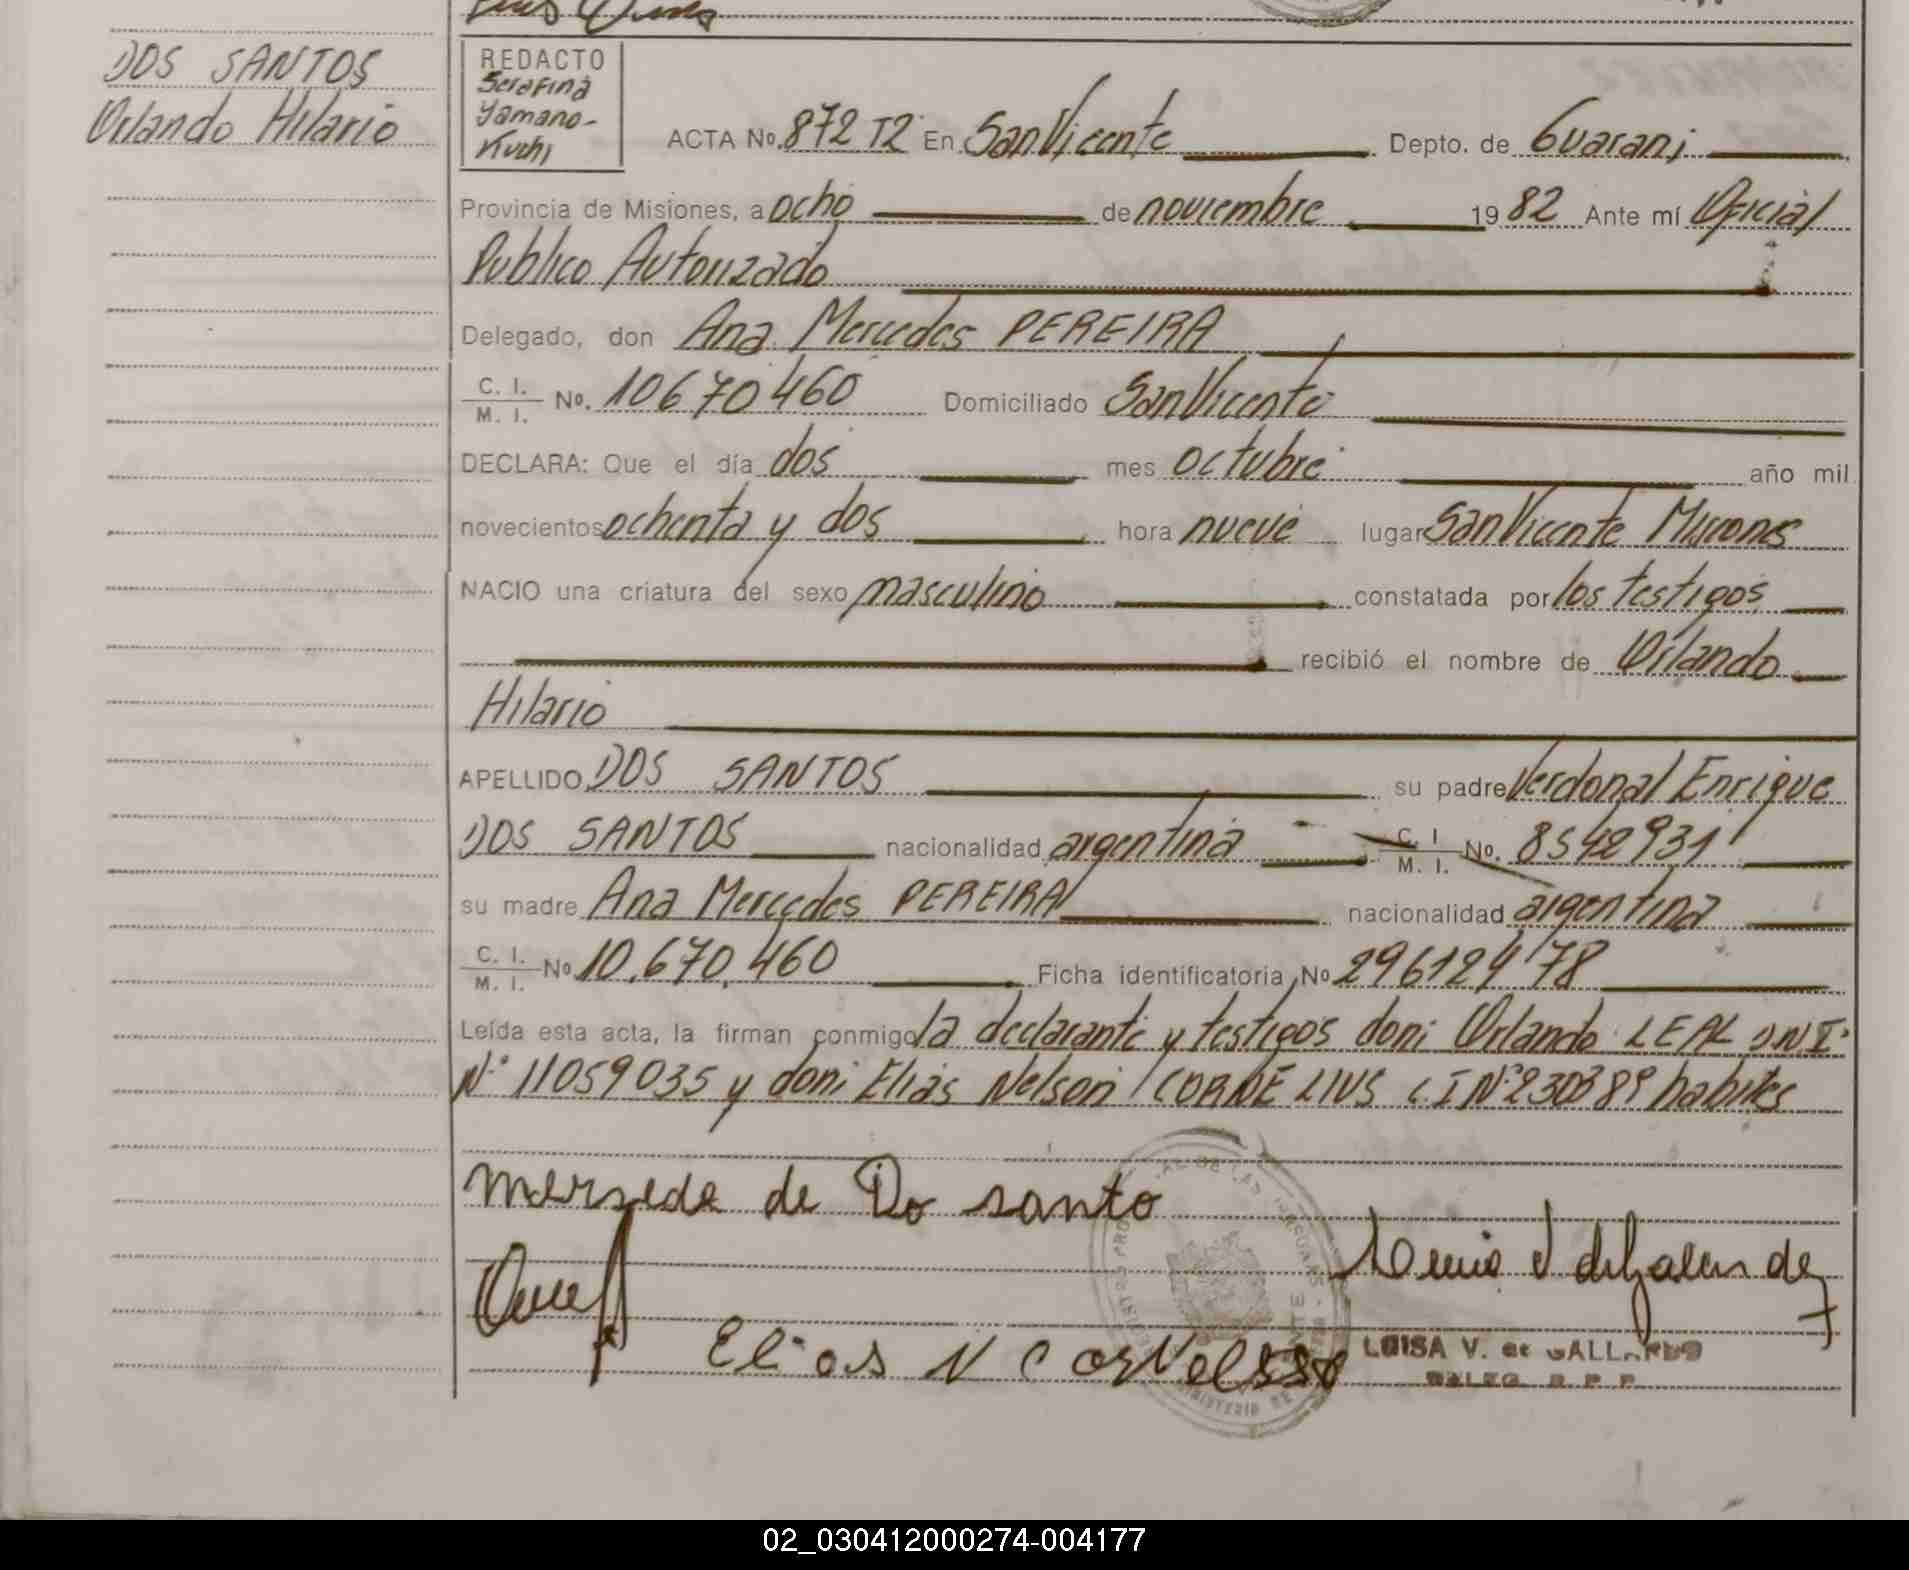 DOS SANTOS
Orlando Hilario
REDACTO
Serafina
Yamano-
Kuchi
ACTA No. 872 T2 En San Vicente Depto. de Guarani
Provincia de Misiones, a ocho de noviembre 19 82 Ante mí Oficial
Publico Autorizado
Delegado, don Ana Mercedes PEREIRA
C. I. / M. I. No. 10670460 Domiciliado San Vicente
DECLARA: Que el día dos mes octubre año mil
novecientos ochenta y dos hora nueve lugar San Vicente Misiones
NACIO una criatura del sexo masculino constatada por los testigos
recibió el nombre de Orlando
Hilario
APELLIDO DOS SANTOS su padre Verdonal Enrique
DOS SANTOS nacionalidad argentina C. I / M. I. No. 8542931
su madre Ana Mercedes PEREIRA nacionalidad argentina
C. I. / M. I. No 10.670.460 Ficha identificatoria No 29612478
Leída esta acta, la firman conmigo la declarante y testigos don: Orlando LEAL DNI
N° 11059035 y don: Elias Nelson CORNELIUS C I N° 230389 habiles
Mersede de Do santo
Elias N
LUISA V. de GALLARDO
02_030412000274-004177